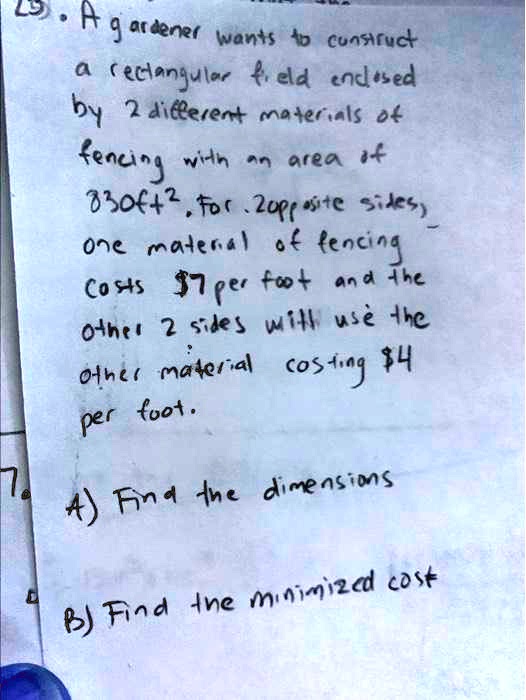 29. A gardener wants to construct
a rectangular field enclosed
by 2 different materials of
fencing with an area of
830ft². For 2opposite sides,
one material of fencing
costs $7 per foot and the
other 2 sides will use the
other material costing $4
per foot.
7.
A) Find the dimensions
B) Find the minimized cost